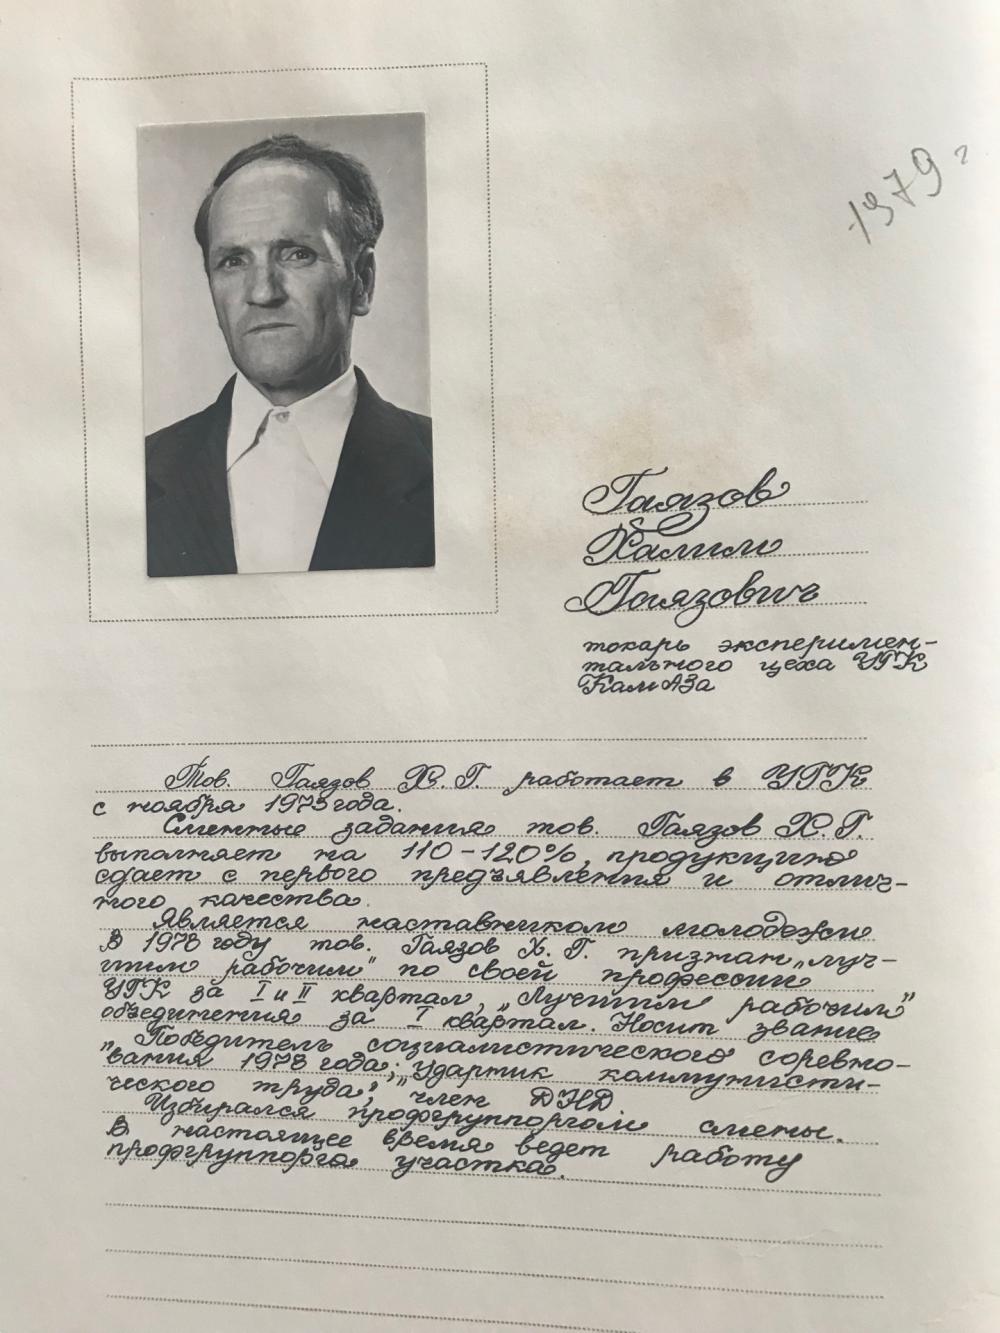 1979 г
Гаязов
Халим
Гаязович
токарь эксперимен-
тального цеха УГК
КамАЗа
Тов. Гаязов Х.Г. работает в УГК
с ноября 1973 года.
Сменные задания тов. Гаязов Х.Г.
выполняет на 110-120%, продукцию
сдает с первого предъявления и отлич-
ного качества.
Является наставником молодежи
В 1978 году тов. Гаязов Х.Г. признан „луч-
шим рабочим" по своей профессии
УГК за I и II квартал, „Лучшим рабочим"
объединения за I квартал. Носит звание
„Победитель социалистического соревно-
вания 1978 года; Ударник коммунисти-
ческого труда", член ДНД.
Избирался профгруппоргом смены.
В настоящее время ведет работу
профгруппорга участка.